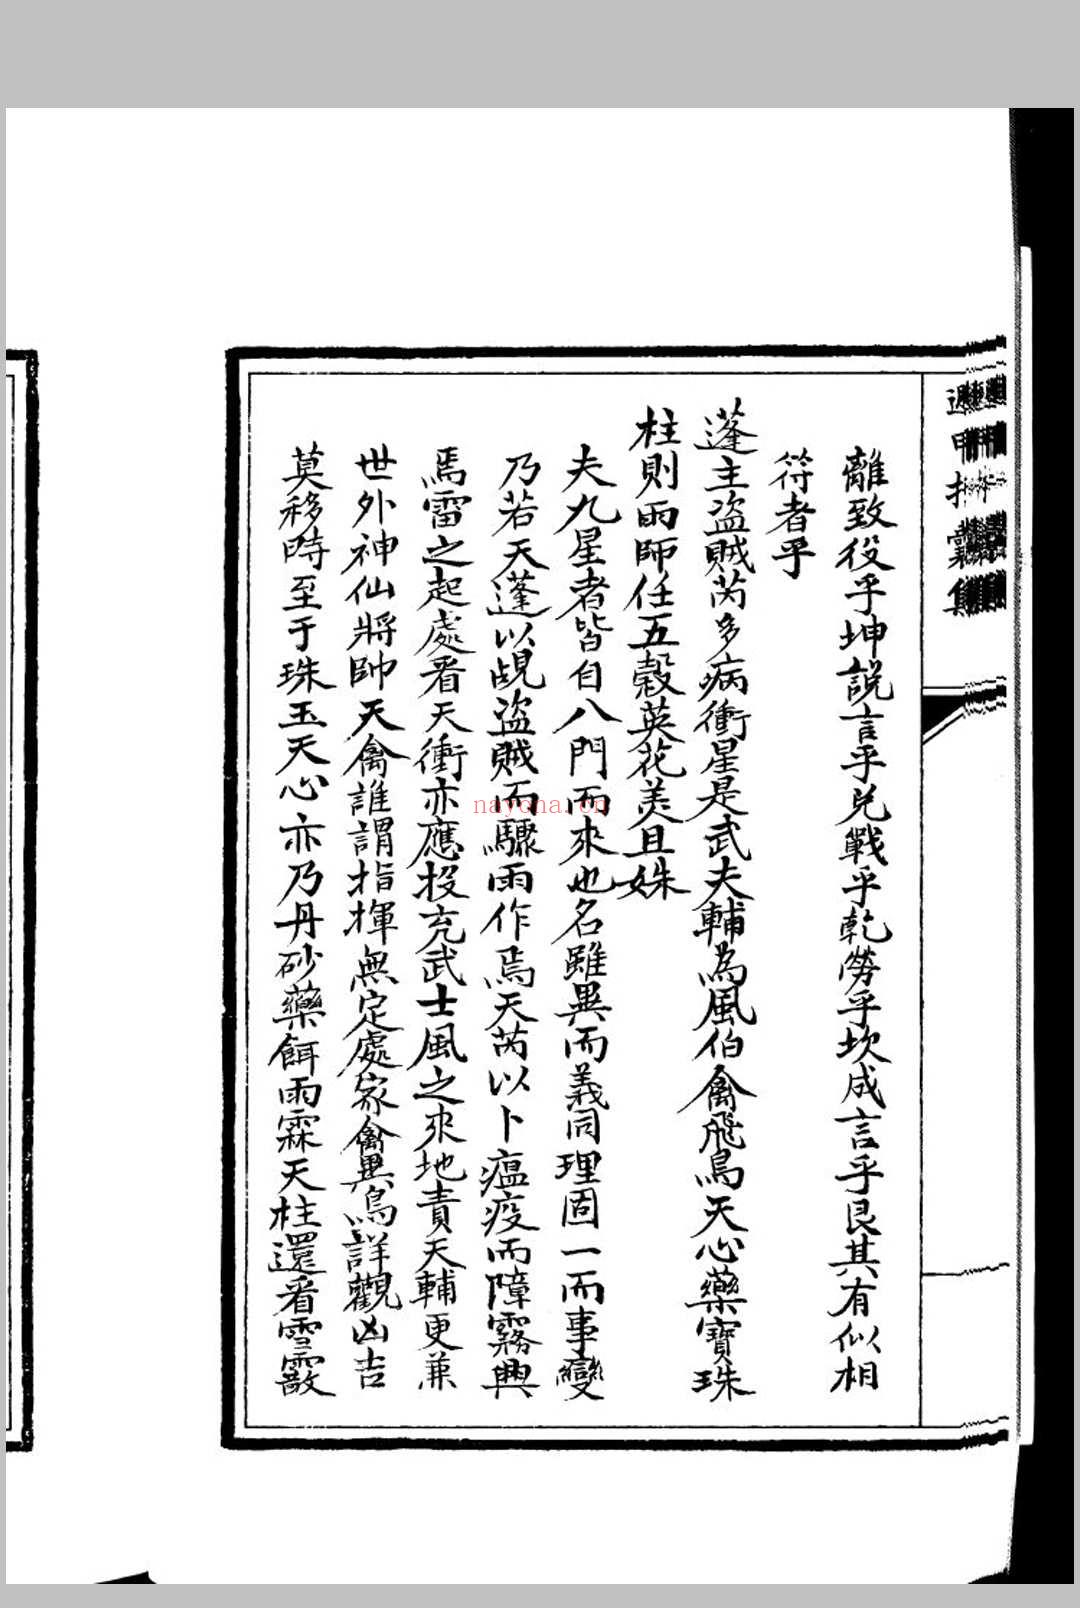 遁甲括囊集
離致役乎坤說言乎兌戰乎乾勞乎坎成言乎艮其有似相
符者乎
蓬主盜賊芮多病衝星是武夫輔為風伯禽飛鳥天心藥寶珠
柱則雨師任五穀英花美且姝
夫九星者皆自八門而來也名雖異而義同理固一而事變
乃若天蓬以覘盜賊而驟雨作焉天芮以卜瘟疫而障霧興
焉雷之起處看天衝亦應投充武士風之來地責天輔更兼
世外神仙將帥天禽誰謂指揮無定處家禽異鳥詳觀凶吉
莫移時至于珠玉天心亦乃丹砂藥餌雨霖天柱還看雪霰
nayona.cn